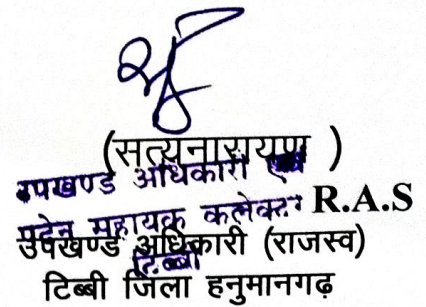 (सत्यनारायण )
उपखण्ड अधिकारी एवं
पदेन सहायक कलेक्टर R.A.S
उपखण्ड अधिकारी (राजस्व)
टिब्बी
टिब्बी जिला हनुमानगढ़